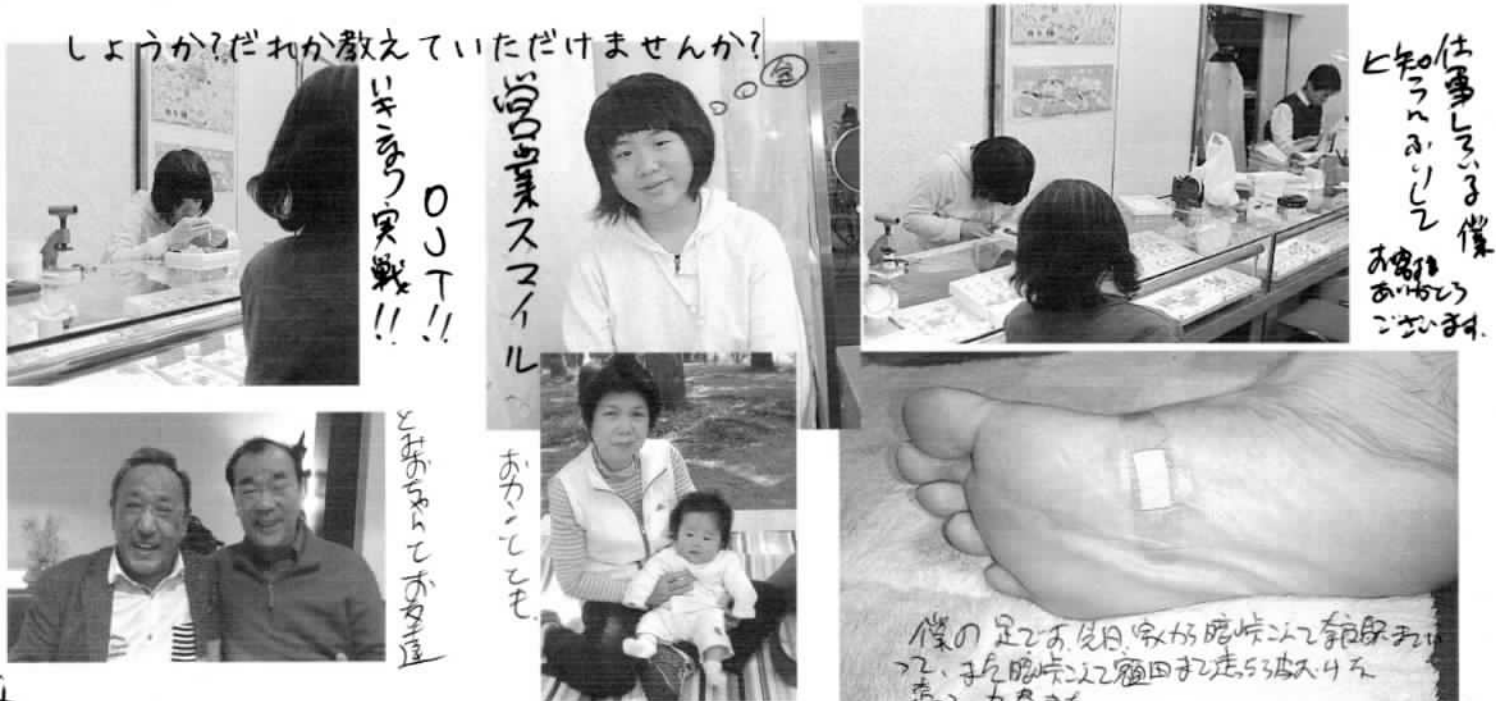 しょうか?だれか教えていただけませんか?
いきなり実戦!!
OJT!!
営業スマイル
仕事している僕
と知らんふりして
お客様
ありがとう
ございます.
とみおちゃんてお友達
おかんてとも.
僕の足です.先日、家から暗峠こえて奈良駅まで
って、また暗峠こえて額田まで走ったら皮むけた